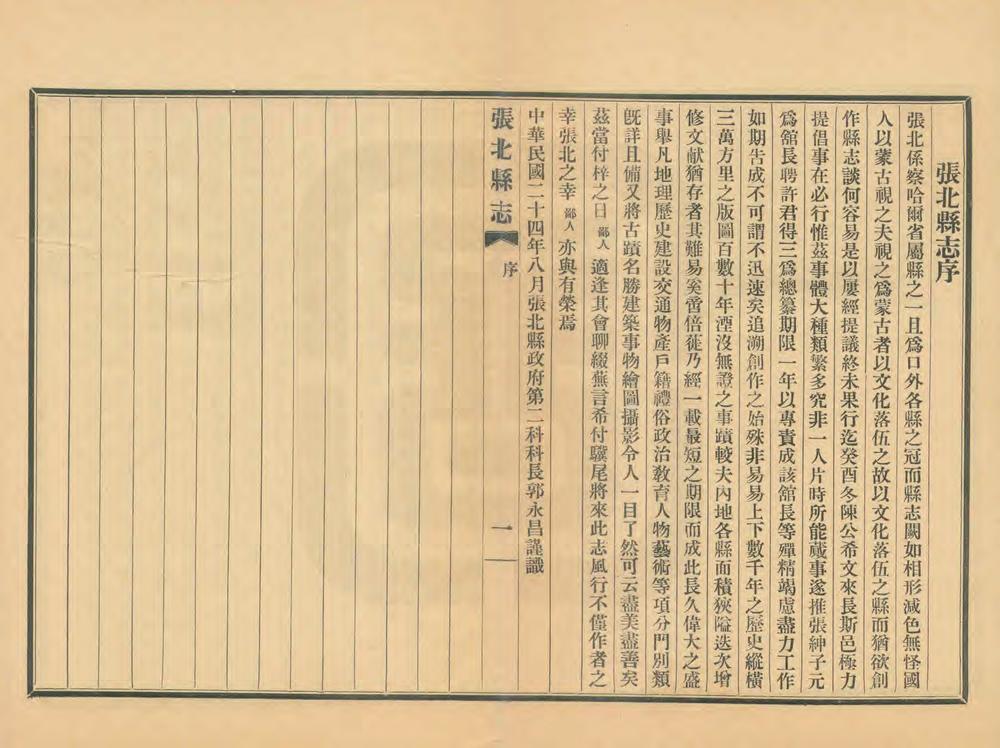 張北縣志序
張北係察哈爾省屬縣之一且爲口外各縣之冠而縣志闕如相形減色無怪國
人以蒙古視之夫視之爲蒙古者以文化落伍之故以文化落伍之縣而猶欲創
作縣志談何容易是以屢經提議終未果行迄癸酉冬陳公希文來長斯邑極力
提倡事在必行惟茲事體大種類繁多究非一人片時所能蕆事遂推張紳子元
爲舘長聘許君得三爲總纂期限一年以專責成該舘長等殫精竭慮盡力工作
如期吿成不可謂不迅速矣追溯創作之始殊非易易上下數千年之歷史縱橫
三萬方里之版圖百數十年湮沒無證之事蹟較夫內地各縣面積狹隘迭次增
修文献猶存者其難易奚啻倍蓰乃經一載最短之期限而成此長久偉大之盛
事舉凡地理歷史建設交通物產戶籍禮俗政治敎育人物藝術等項分門別類
旣詳且備又將古蹟名勝建築事物繪圖攝影令人一目了然可云盡美盡善矣
茲當付梓之日鄙人適逢其會聊綴蕪言希付驥尾將來此志風行不僅作者之
幸張北之幸鄙人亦與有榮焉
中華民國二十四年八月張北縣政府第二科科長郭永昌謹識
張北縣志
序
一